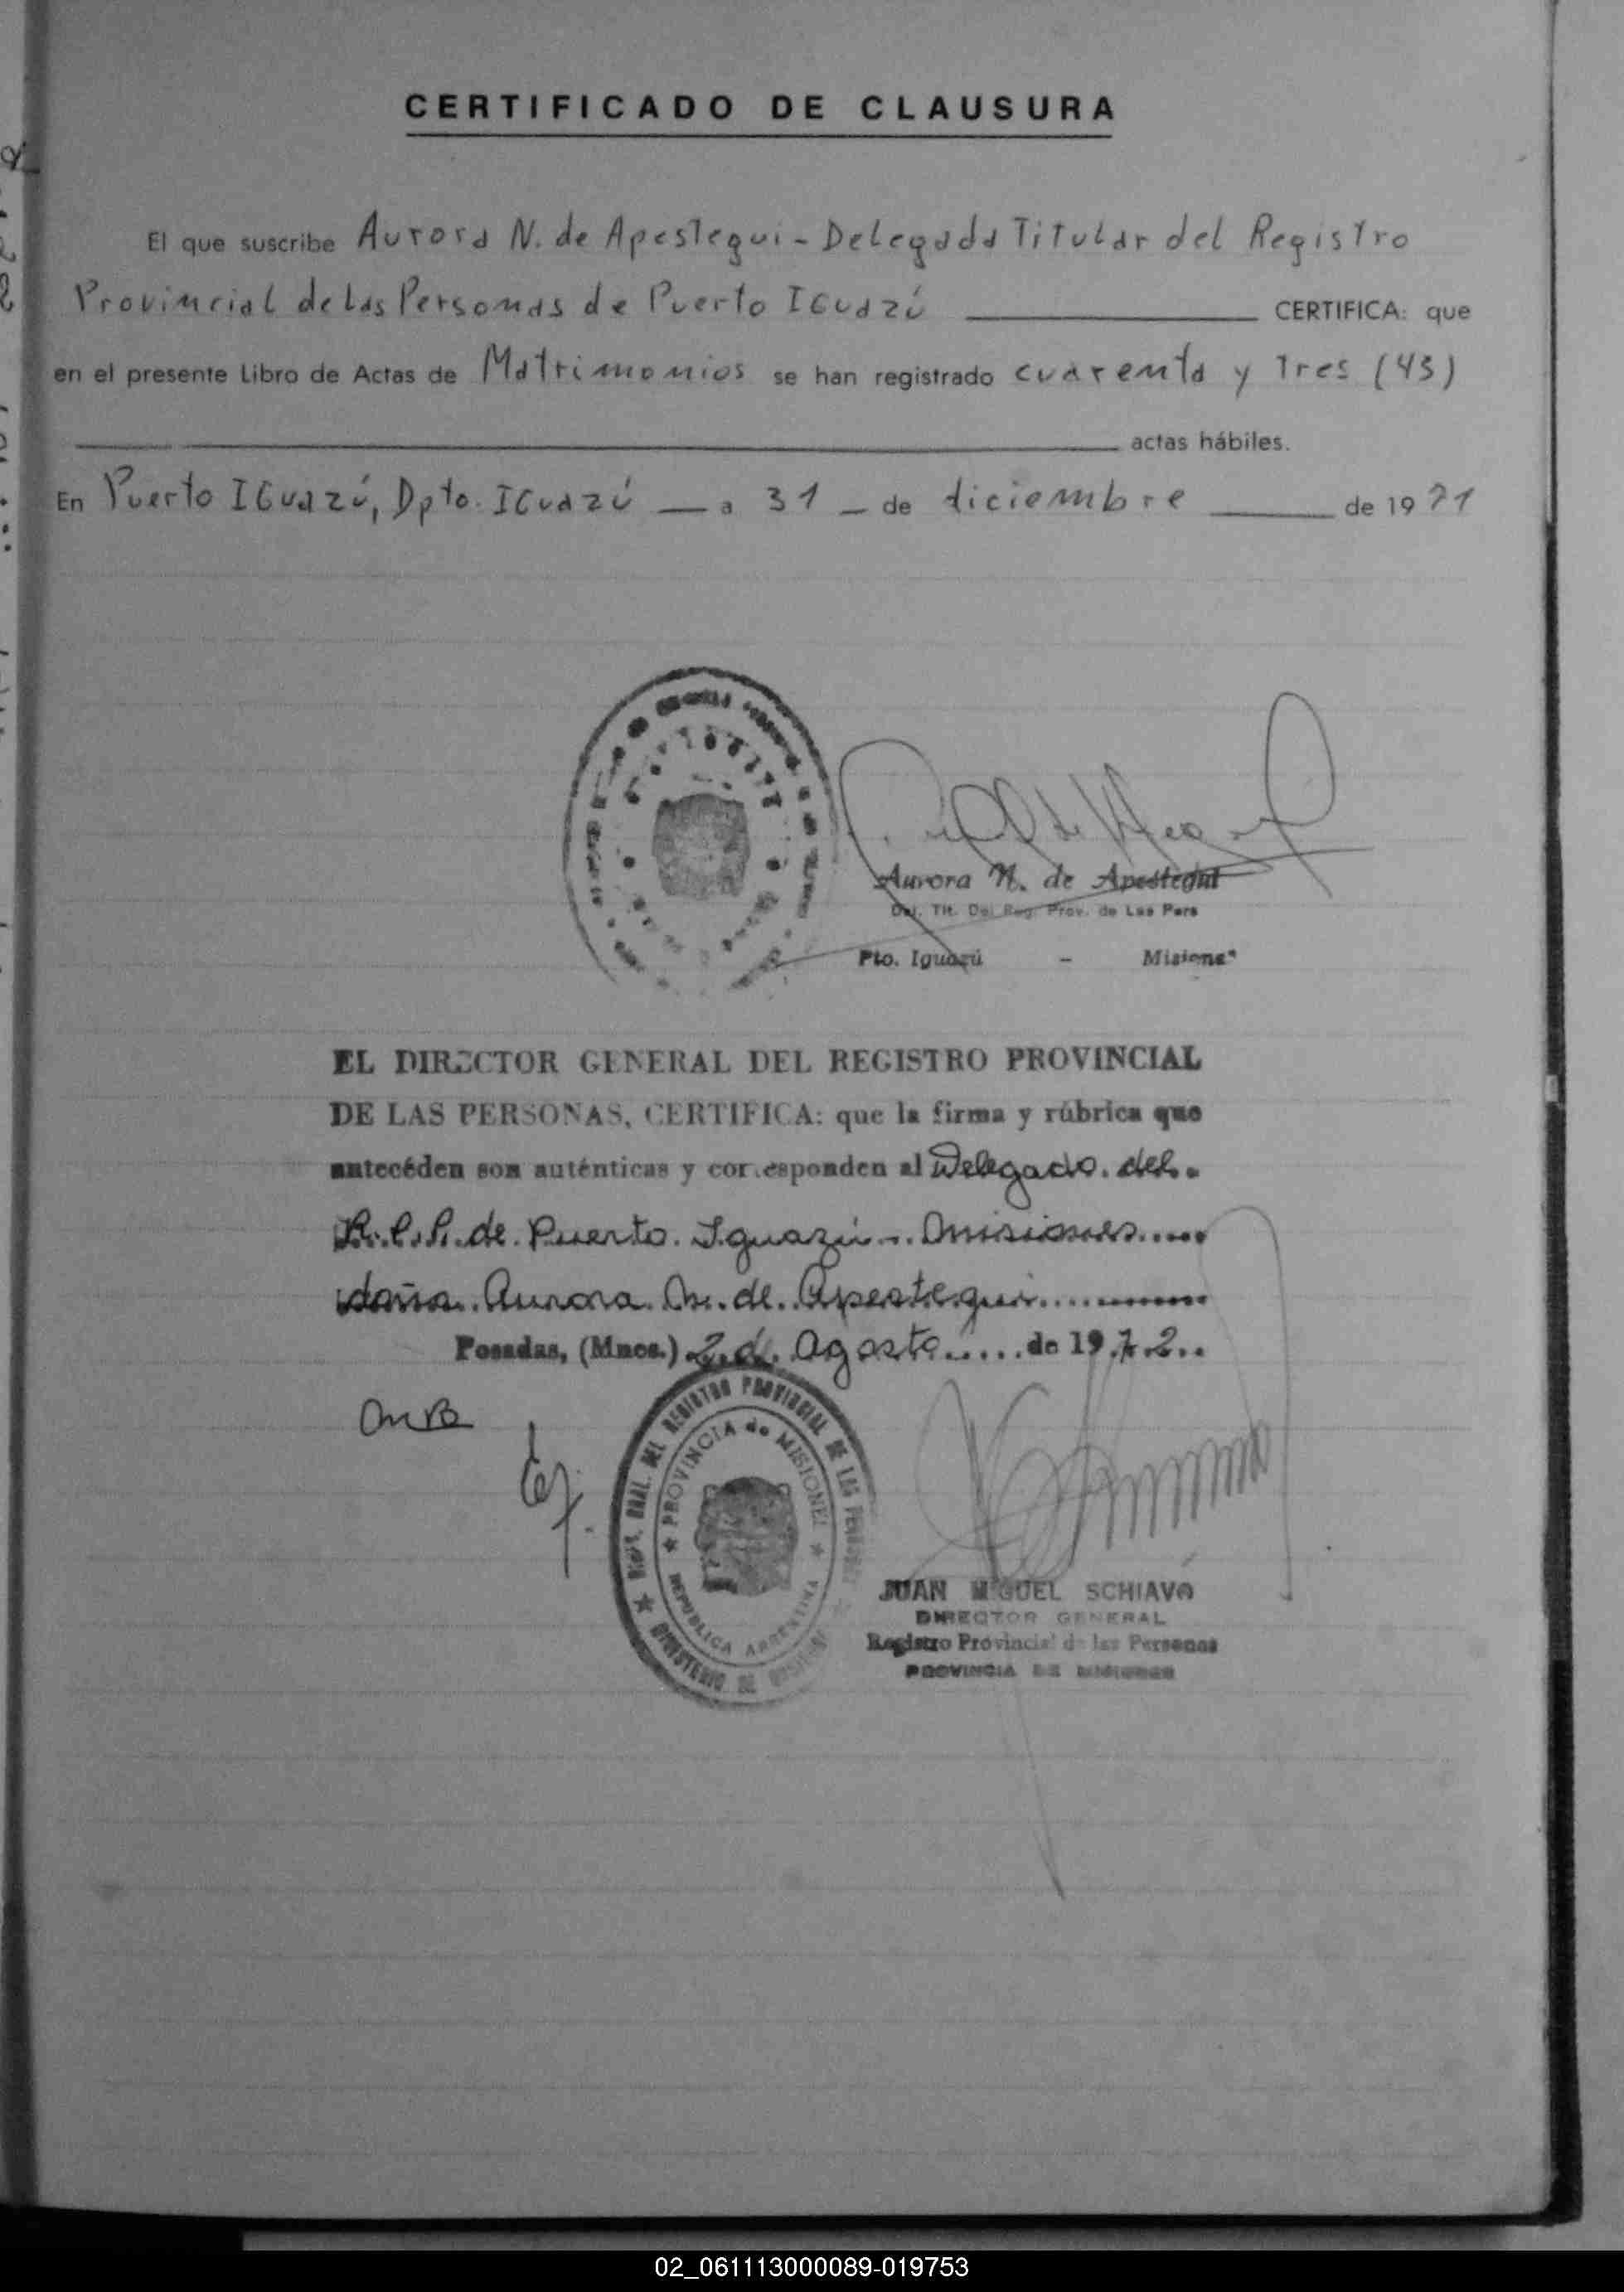 CERTIFICADO DE CLAUSURA
El que suscribe Aurora N. de Apestegui - Delegada Titular del Registro
Provincial de las Personas de Puerto IGuazú CERTIFICA: que
en el presente Libro de Actas de Matrimonios se han registrado cuarenta y Tres (43)
actas hábiles.
En Puerto IGuazú, Dpto. IGuazú — a 31 — de diciembre de 1971
Aurora N. de Apestegui
Del. Tit. Del Reg. Prov. de Las Pers
Pto. Iguazú - Misiones
EL DIRECTOR GENERAL DEL REGISTRO PROVINCIAL
DE LAS PERSONAS, CERTIFICA: que la firma y rúbrica que
antecéden son auténticas y corresponden al Delegado del
R.P.P. de Puerto Iguazú - Misiones
doña Aurora N. de Apestegui
Posadas, (Mnes.) 2 d. Agosto de 1972
DIR. GRAL. DEL REGISTRO PROVINCIAL DE LAS PERSONAS
PROVINCIA de MISIONES
REPUBLICA ARGENTINA
MINISTERIO DE
JUAN MIGUEL SCHIAVO
DIRECTOR GENERAL
Registro Provincial de las Personas
PROVINCIA DE MISIONES
02_061113000089-019753